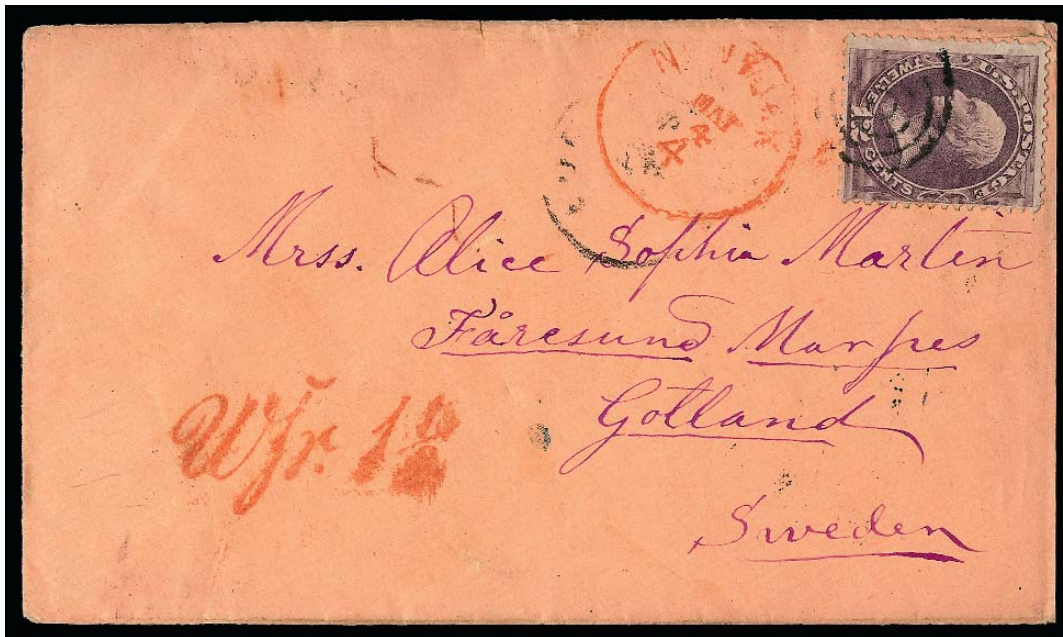 NEW YORK
MAY
4
U.S. POSTAGE
TWELVE CENTS
Mrss. Alice Sophia Martin
Fåresund Marpes
Gotland
Sweden
Wfr. 1